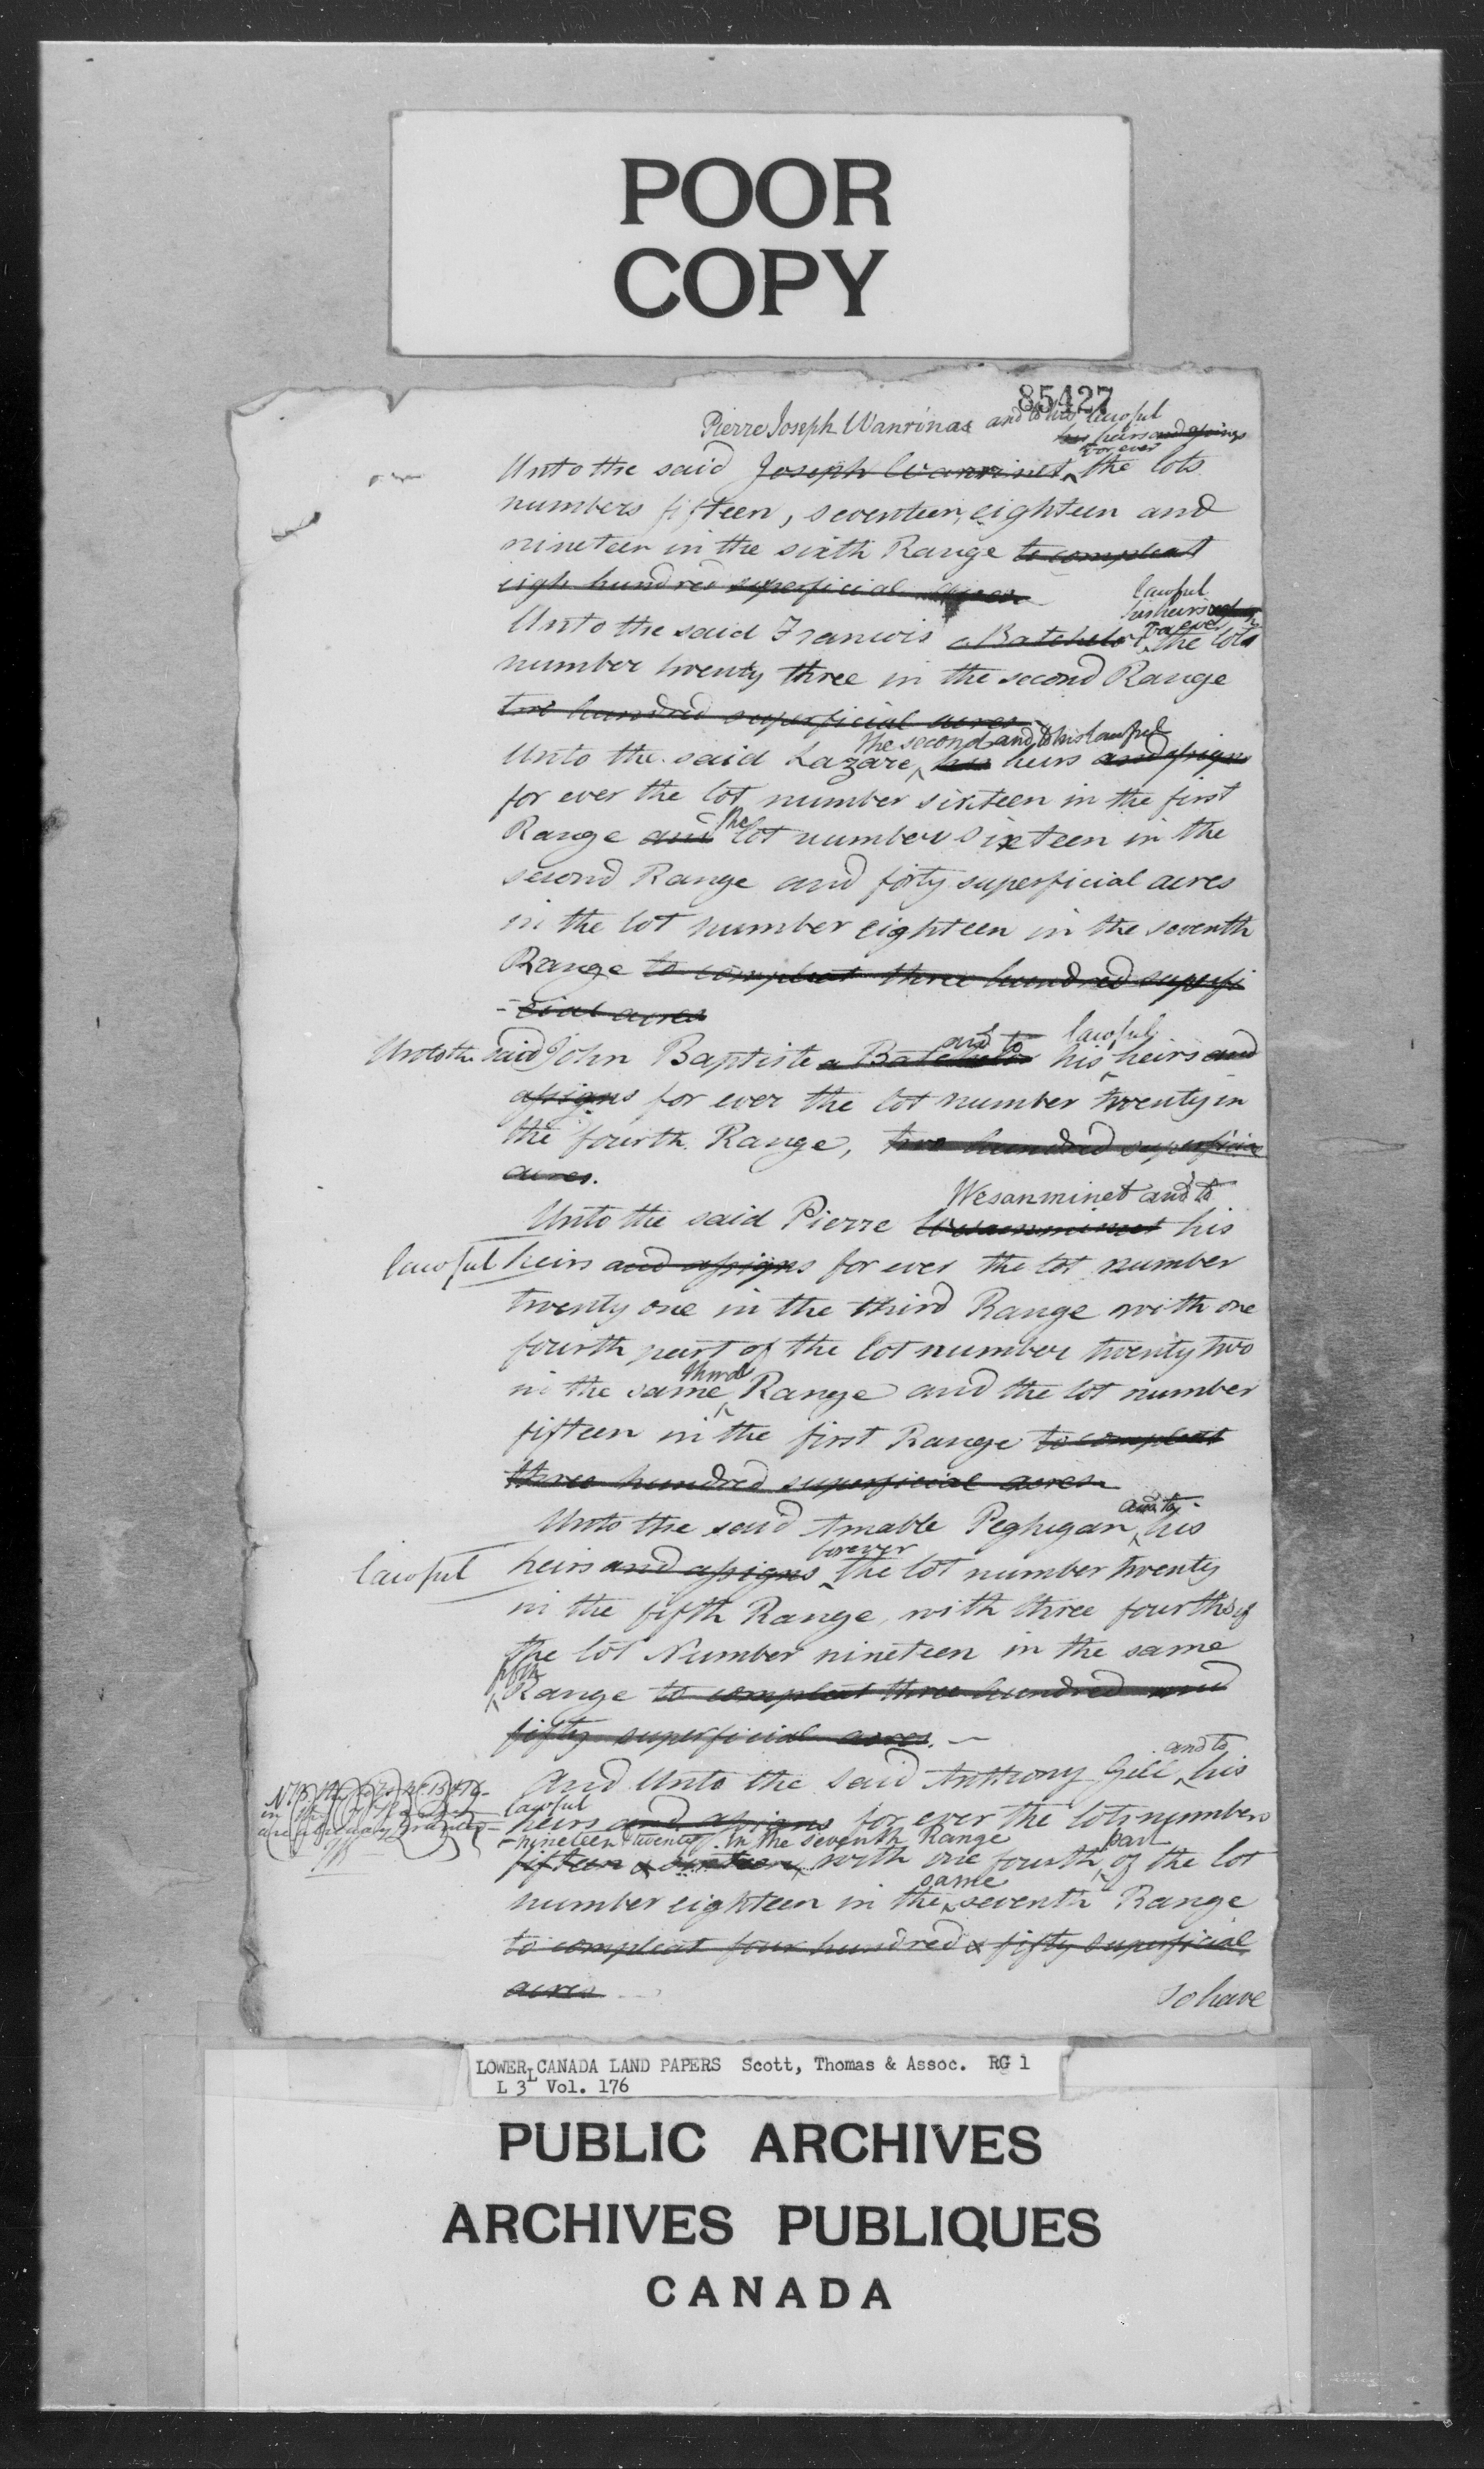 POOR
COPY
85427
Pierre Joseph Wanrinas and to his lawful
his heirs and assigns
for ever
Unto the said Joseph Wanrinet the lots
numbers fifteen, seventeen, eighteen and
nineteen in the sixth Range to compleat
eigh hundred superficial acres
lawful
his heirs
for ever
Unto the said Francois a Batchelor the lots
number twenty three in the second Range
two hundred superficial acres
the second and to his lawful
Unto the said Lazare, his heirs and assigns
for ever the lot number sixteen in the first
the
Range and lot number sixteen in the
second Range and forty superficial acres
in the lot number eighteen in the seventh
Range to compleat three hundred superfi
-cial acres
and to lawful
Unto the said John Baptiste a Batchelor his heirs and
assigns for ever the lot number twenty in
the fourth Range, two hundred superficial
acres.
Wesanminet and to
Unto the said Pierre his
lawful heirs and assigns for ever the lot number
twenty one in the third Range with one
fourth part of the lot number twenty two
third
in the same Range and the lot number
fifteen in the first Range to compleat
three hundred superficial acres
and to
Unto the said Amable Peghigan his
forever
lawful heirs and assigns the lot number twenty
in the fifth Range, with three fourths of
the lot Number nineteen in the same
fifth
Range to compleat three hundred and
fifty superficial acres.
and to
And Unto the said Anthony Gill, his
N.B. the
in the
are already granted
lawful
heirs and assigns for ever the lots numbers
nineteen & twenty in the seventh Range part
fifteen & sixteen with one fourth of the lot
same
number eighteen in the seventh Range
to compleat four hundred & fifty superficial
acres
To have
LOWER CANADA LAND PAPERS Scott, Thomas & Assoc. RG 1
L 3L Vol. 176
PUBLIC ARCHIVES
ARCHIVES PUBLIQUES
CANADA